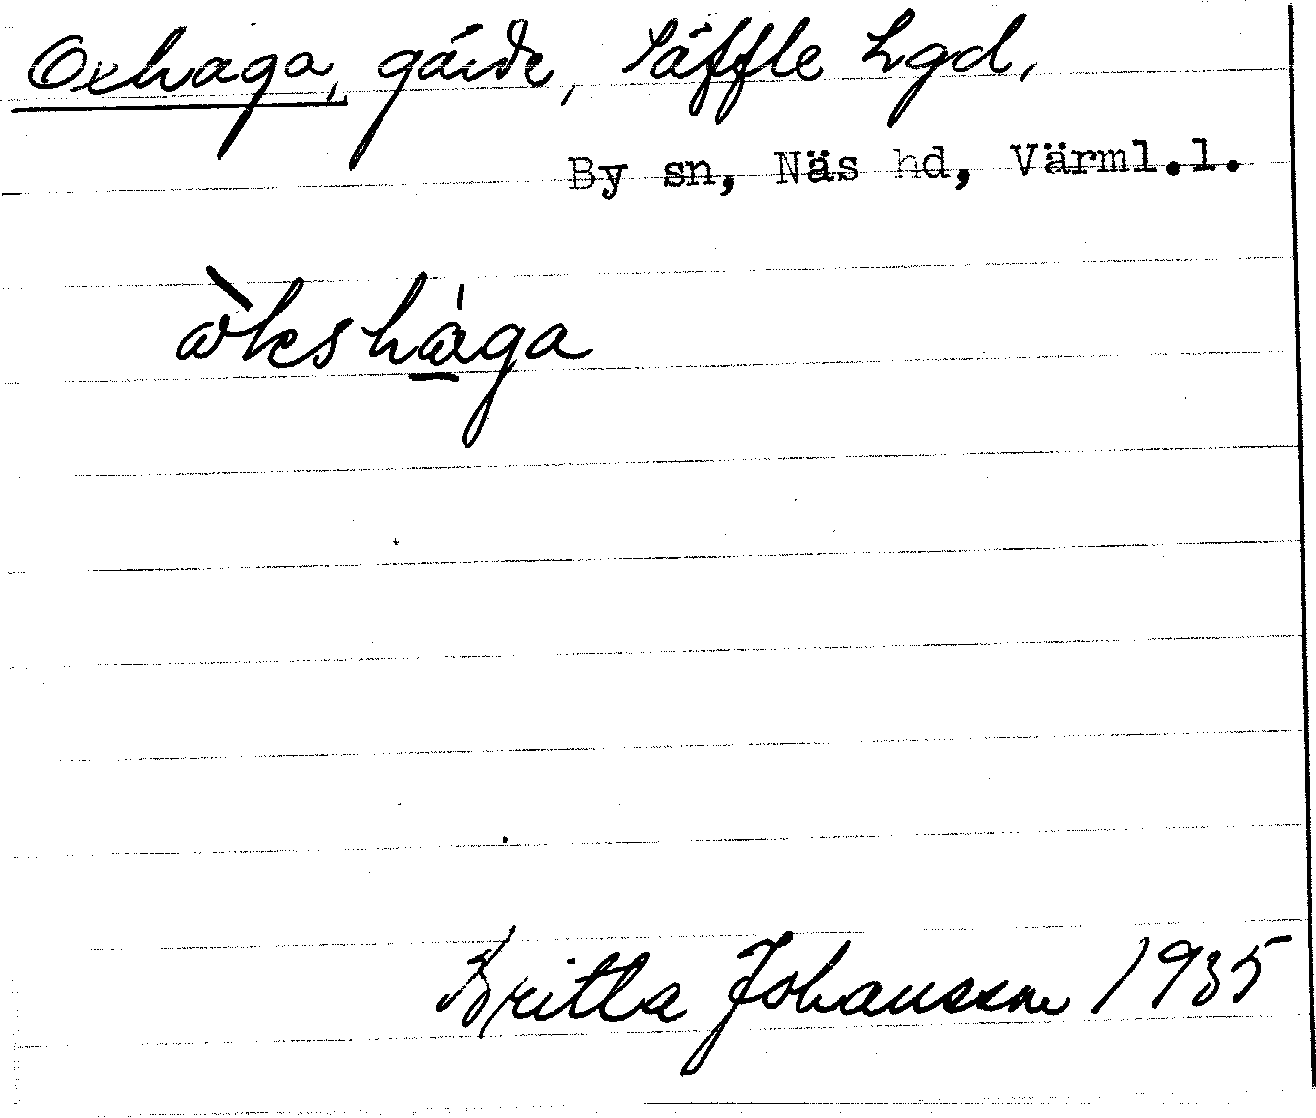 Oxhaga, gärde, Säffle hgd,
By sn, Näs hd, Värml.l.
òkshága
Britta Johansson 1935